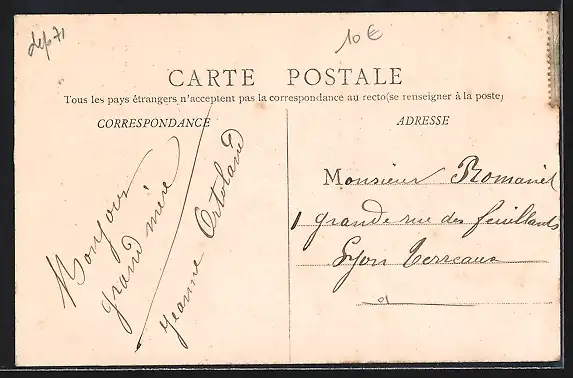 dep 71
10 €
CARTE POSTALE
Tous les pays étrangers n'acceptent pas la correspondance au recto (se renseigner à la poste)
CORRESPONDANCE
Bonjour
grand mère
Jeanne Ortoland
ADRESSE
Monsieur Romanet
1 grande rue des feuillants
Lyon Terreaux